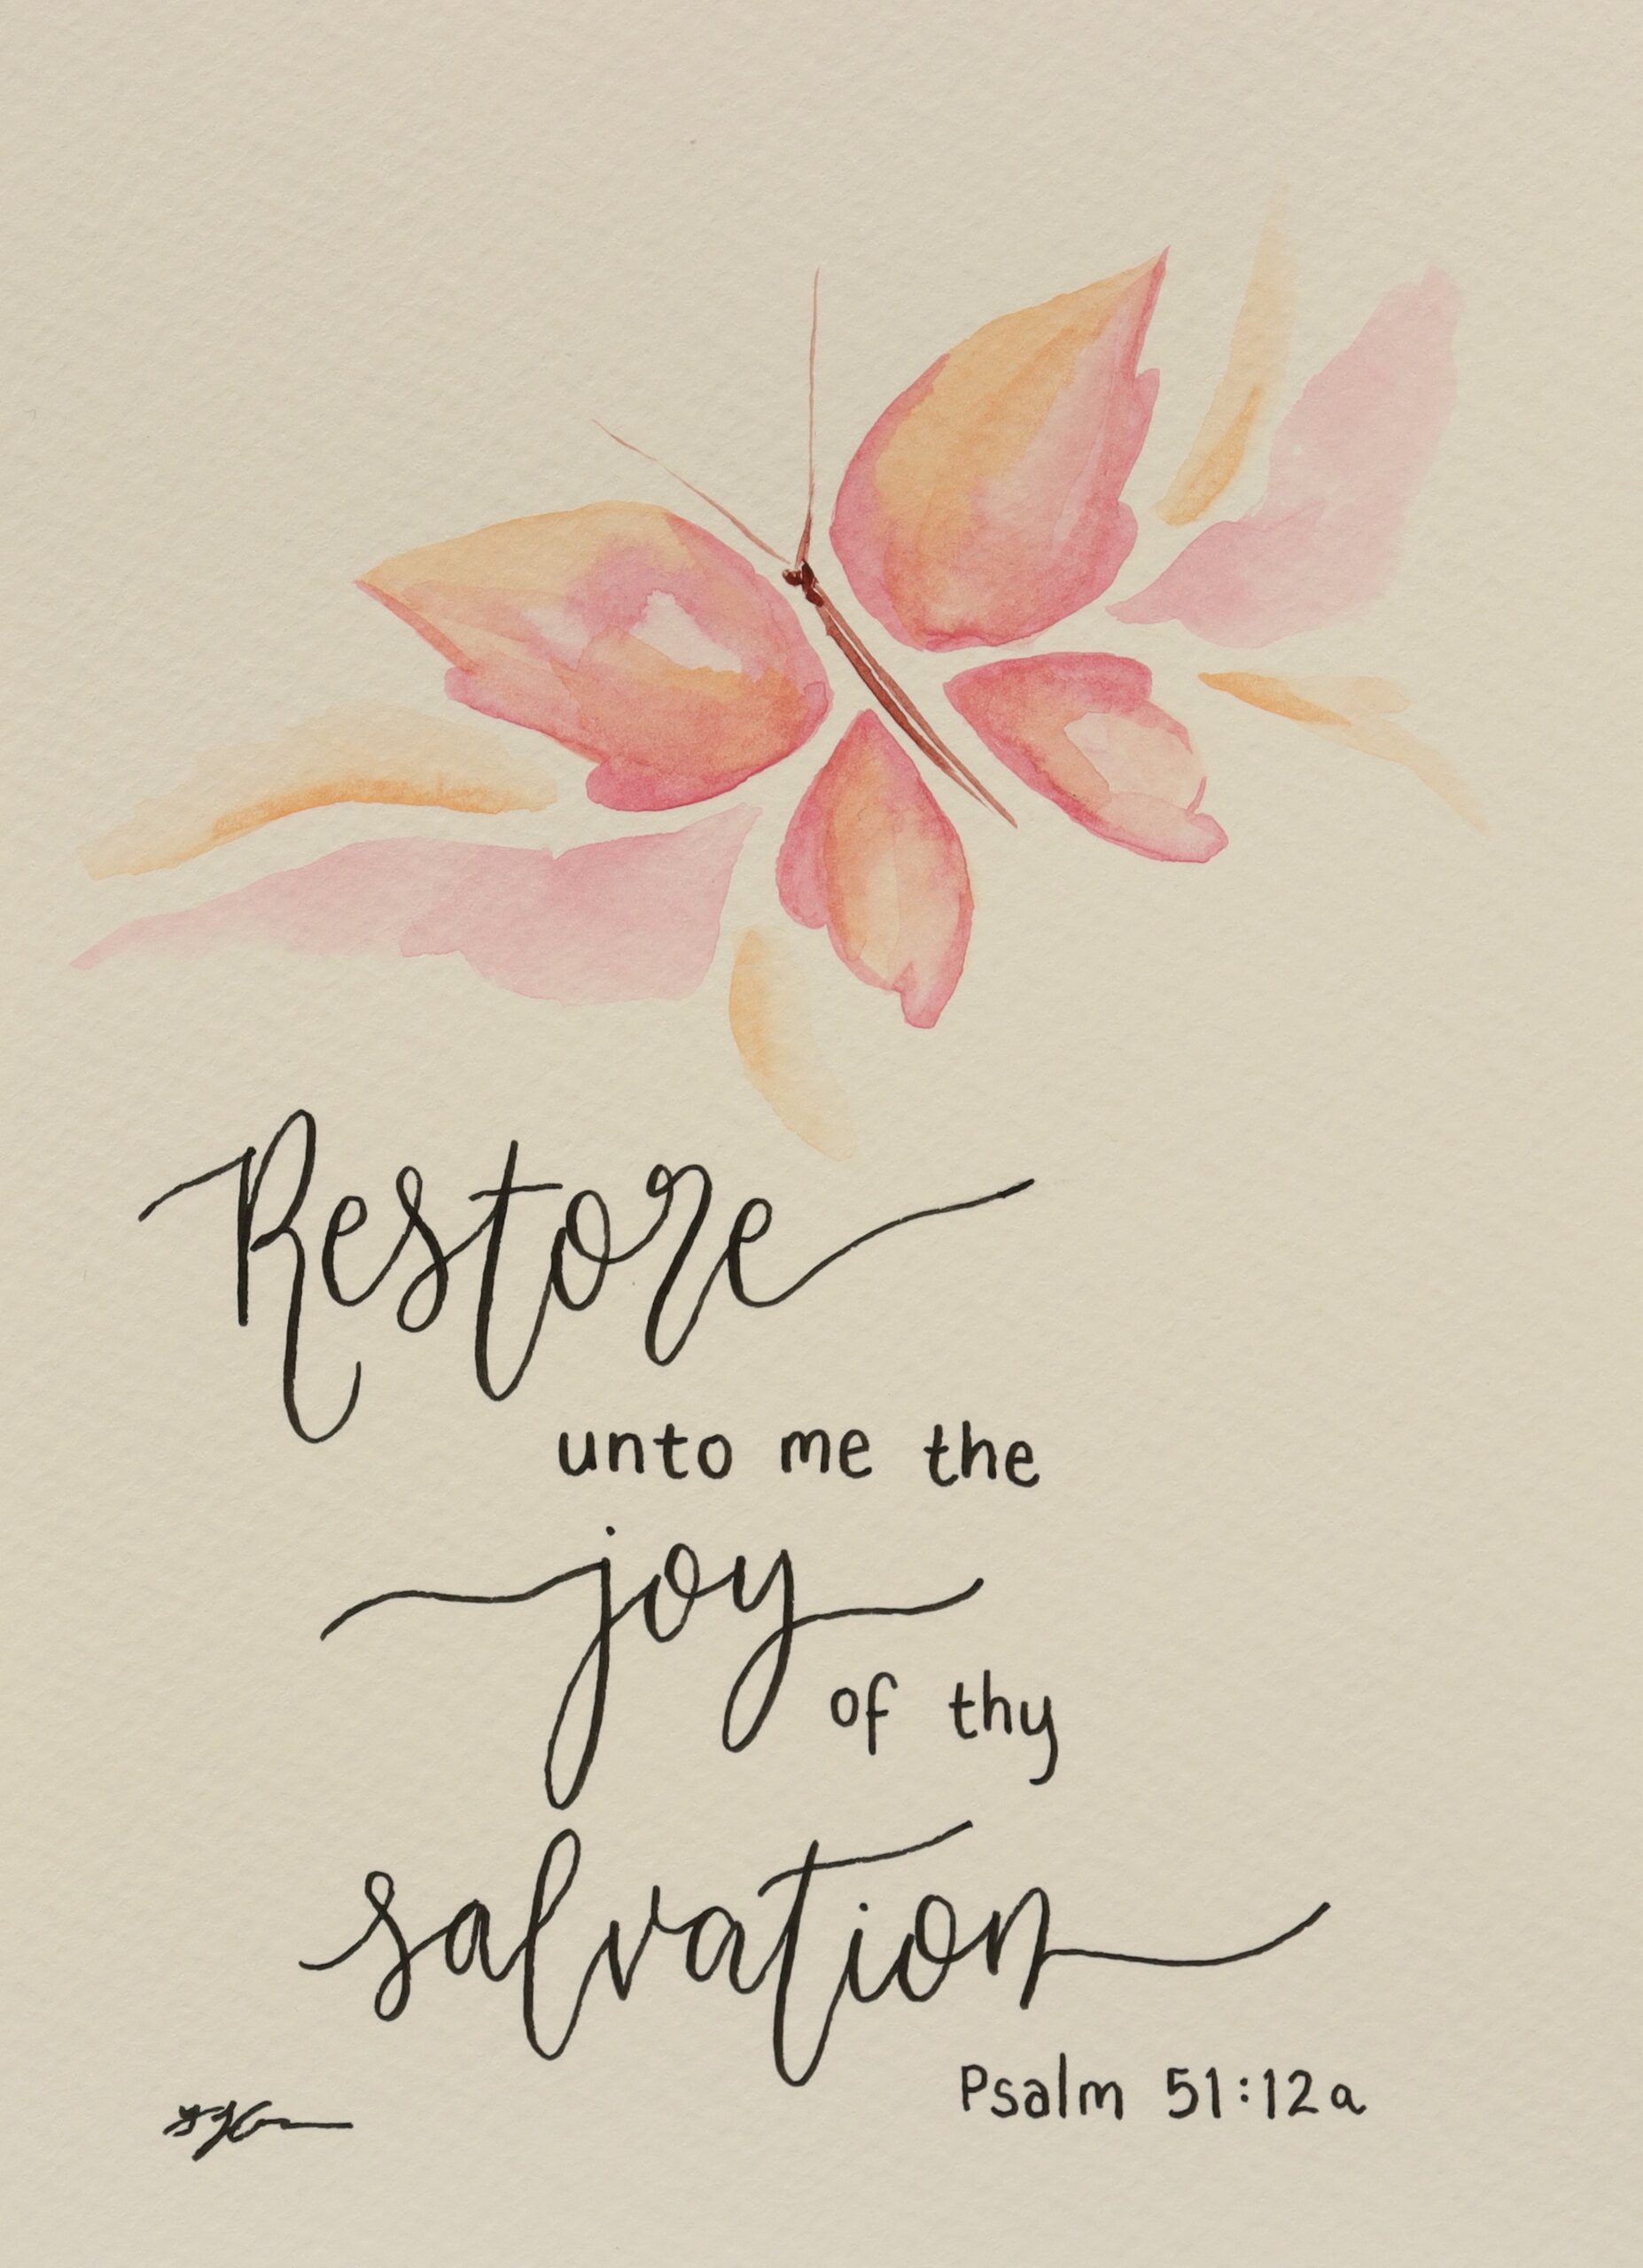 Restore
unto me the
joy
of thy
salvation
Psalm 51:12a